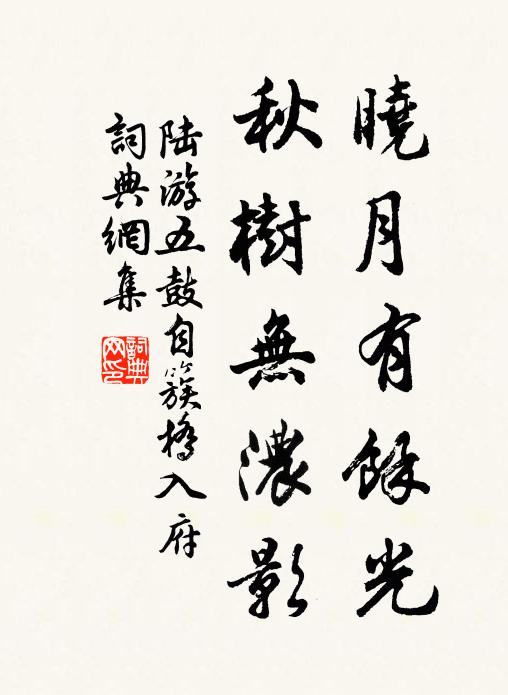 曉月有餘光
秋樹無濃影
陸游五鼓自簇橋入府
詞典網集
詞典網印